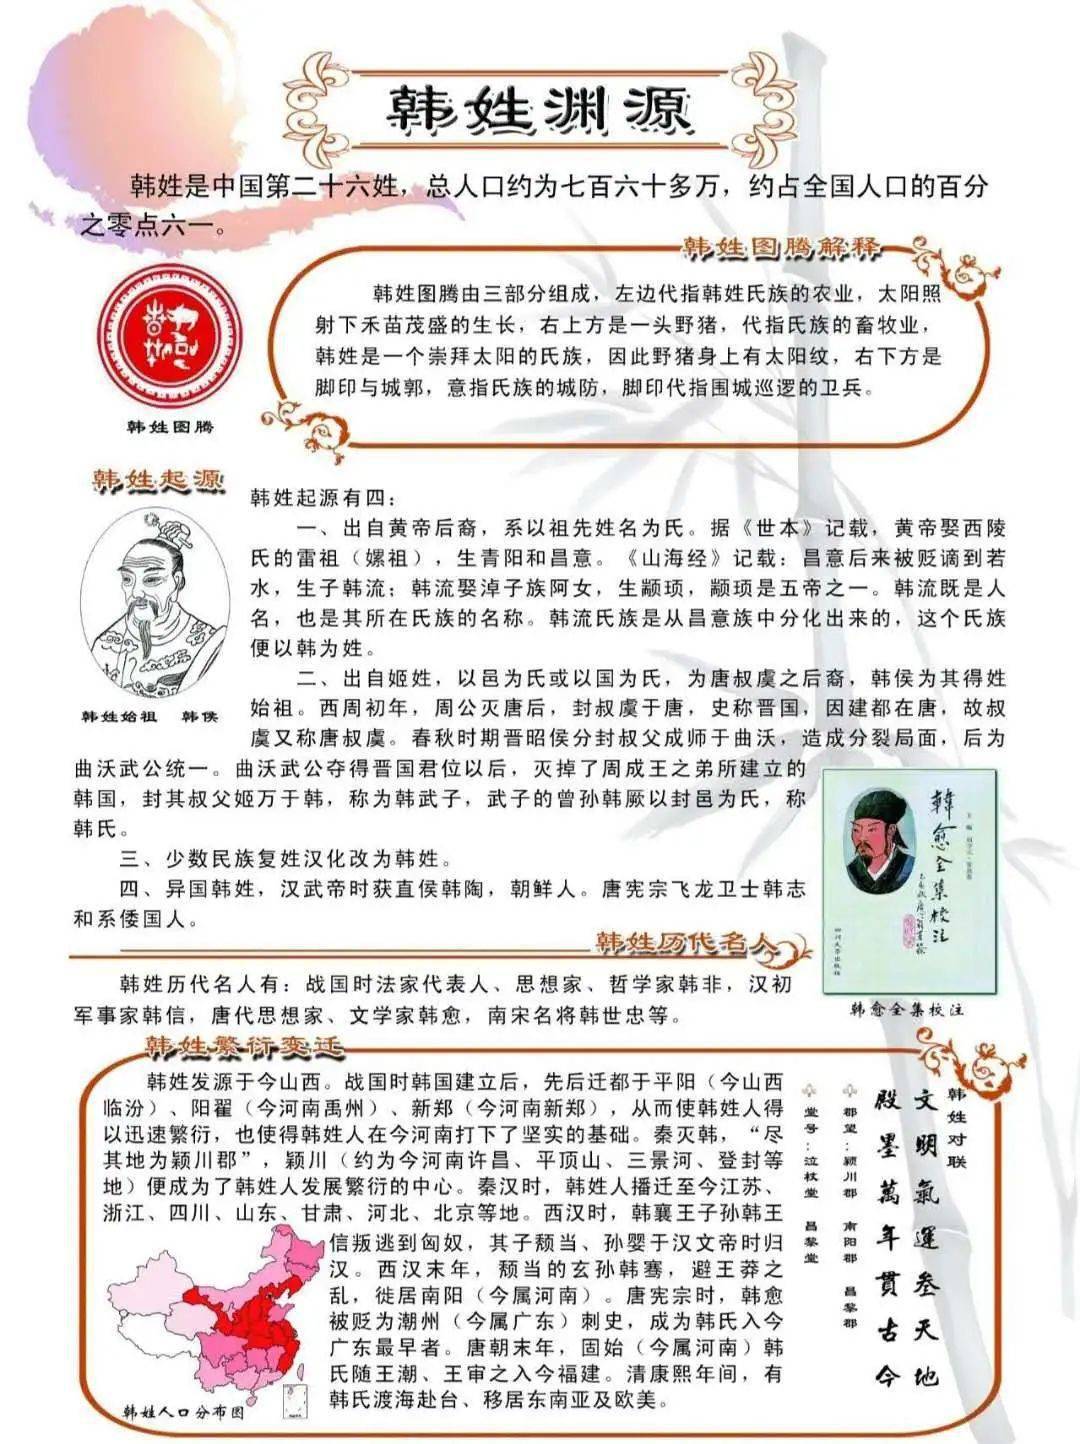 韩姓渊源
韩姓是中国第二十六姓，总人口约为七百六十多万，约占全国人口的百分
之零点六一。
韩姓图腾解释
韩姓图腾由三部分组成，左边代指韩姓氏族的农业，太阳照
射下禾苗茂盛的生长，右上方是一头野猪，代指氏族的畜牧业，
韩姓是一个崇拜太阳的氏族，因此野猪身上有太阳纹，右下方是
脚印与城郭，意指氏族的城防，脚印代指围城巡逻的卫兵。
韩姓图腾
韩姓起源
韩姓始祖 韩侯
韩姓起源有四：
一、出自黄帝后裔，系以祖先姓名为氏。据《世本》记载，黄帝娶西陵
氏的雷祖（嫘祖），生青阳和昌意。《山海经》记载：昌意后来被贬谪到若
水，生子韩流；韩流娶淖子族阿女，生颛顼，颛顼是五帝之一。韩流既是人
名，也是其所在氏族的名称。韩流氏族是从昌意族中分化出来的，这个氏族
便以韩为姓。
二、出自姬姓，以邑为氏或以国为氏，为唐叔虞之后裔，韩侯为其得姓
始祖。西周初年，周公灭唐后，封叔虞于唐，史称晋国，因建都在唐，故叔
虞又称唐叔虞。春秋时期晋昭侯分封叔父成师于曲沃，造成分裂局面，后为
曲沃武公统一。曲沃武公夺得晋国君位以后，灭掉了周成王之弟所建立的
韩国，封其叔父姬万于韩，称为韩武子，武子的曾孙韩厥以封邑为氏，称
韩氏。
三、少数民族复姓汉化改为韩姓。
四、异国韩姓，汉武帝时获直侯韩陶，朝鲜人。唐宪宗飞龙卫士韩志
和系倭国人。
韓愈全集校注
四川大学出版社
韩愈全集校注
韩姓历代名人
韩姓历代名人有：战国时法家代表人、思想家、哲学家韩非，汉初
军事家韩信，唐代思想家、文学家韩愈，南宋名将韩世忠等。
韩姓繁衍变迁
韩姓发源于今山西。战国时韩国建立后，先后迁都于平阳（今山西
临汾）、阳翟（今河南禹州）、新郑（今河南新郑），从而使韩姓人得
以迅速繁衍，也使得韩姓人在今河南打下了坚实的基础。秦灭韩，“尽
其地为颍川郡”，颍川（约为今河南许昌、平顶山、三景河、登封等
地）便成为了韩姓人发展繁衍的中心。秦汉时，韩姓人播迁至今江苏、
浙江、四川、山东、甘肃、河北、北京等地。西汉时，韩襄王子孙韩王
信叛逃到匈奴，其子颓当、孙婴于汉文帝时归
汉。西汉末年，颓当的玄孙韩骞，避王莽之
乱，徙居南阳（今属河南）。唐宪宗时，韩愈
被贬为潮州（今属广东）刺史，成为韩氏入今
广东最早者。唐朝末年，固始（今属河南）韩
氏随王潮、王审之入今福建。清康熙年间，有
韩氏渡海赴台、移居东南亚及欧美。
韩姓人口分布图
韩姓对联
文明氣運叁天地
殿墨萬年貫古今
郡望：颍川郡 南阳郡 昌黎郡
堂号：泣杖堂 昌黎堂